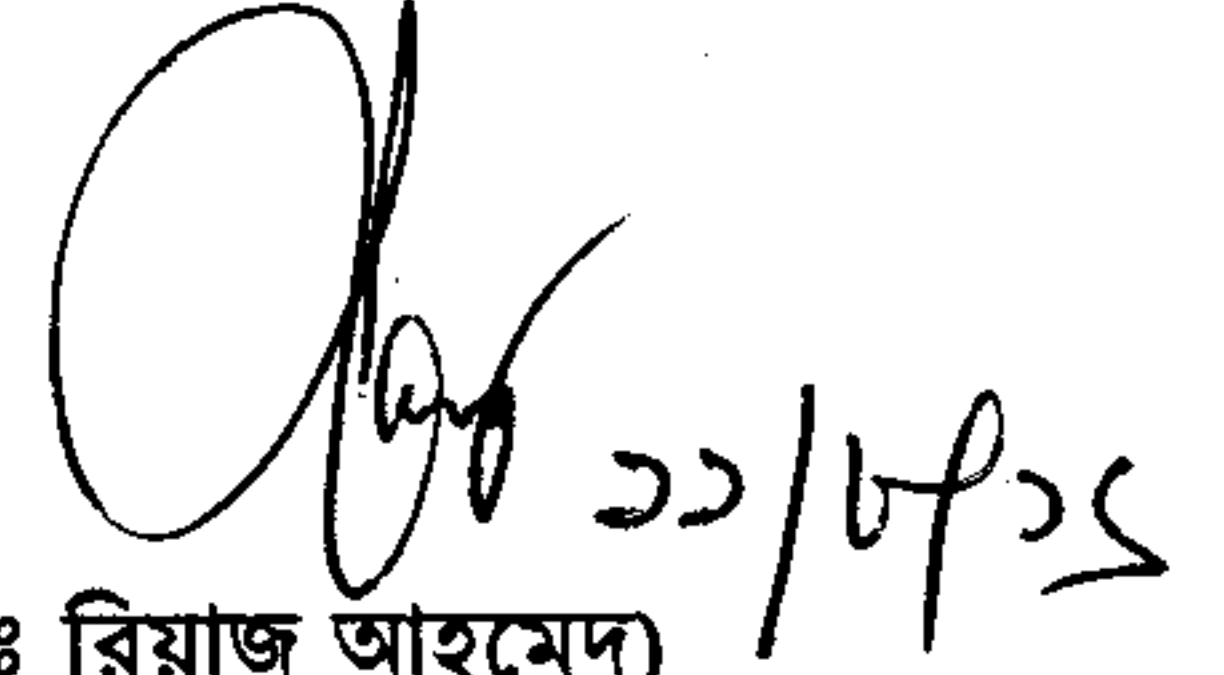 ১১/৮/১৬
ঃ রিয়াজ আহমেদ)